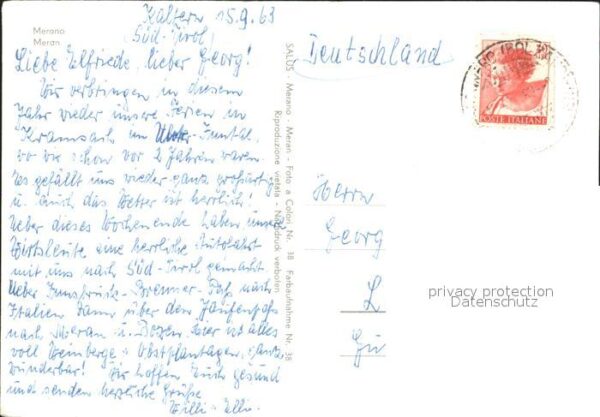 Kaltern 15.9.63
Süd-Tirol
Merano
Meran
Liebe Elfriede, lieber Georg!
Wir verbringen in diesem
Jahr wieder unsere Ferien in
Kramsach im Unter-Inntal,
wo wir schon vor 2 Jahren waren.
Es gefällt uns wieder ganz großartig
u. auch das Wetter ist herrlich.
Ueber dieses Wochenende haben unsere
Wirtsleute eine herrliche Autofahrt
mit uns nach Süd-Tirol gemacht.
Ueber Innsbruck-Brenner-Paß nach
Italien dann über den Jaufenpaß
nach Meran u. Bozen. Hier ist alles
voll Weinberge u. Obstplantagen, ganz
wunderbar! Wir hoffen Euch gesund
und senden herzliche Grüße
Willi u. Elli.
SALUS - Merano - Meran - Foto a Colori Nr. 38 Farbaufnahme Nr. 38
Riproduzione vietata - Nachdruck verboten
Deutschland
POSTE ITALIANE
Herrn
Georg
L
Gu
privacy protection
Datenschutz